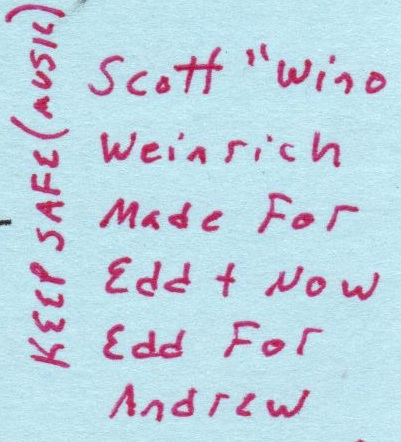 KEEP SAFE (MUSIC)
Scott "Wino
Weinrich
Made For
Edd + Now
Edd For
Andrew